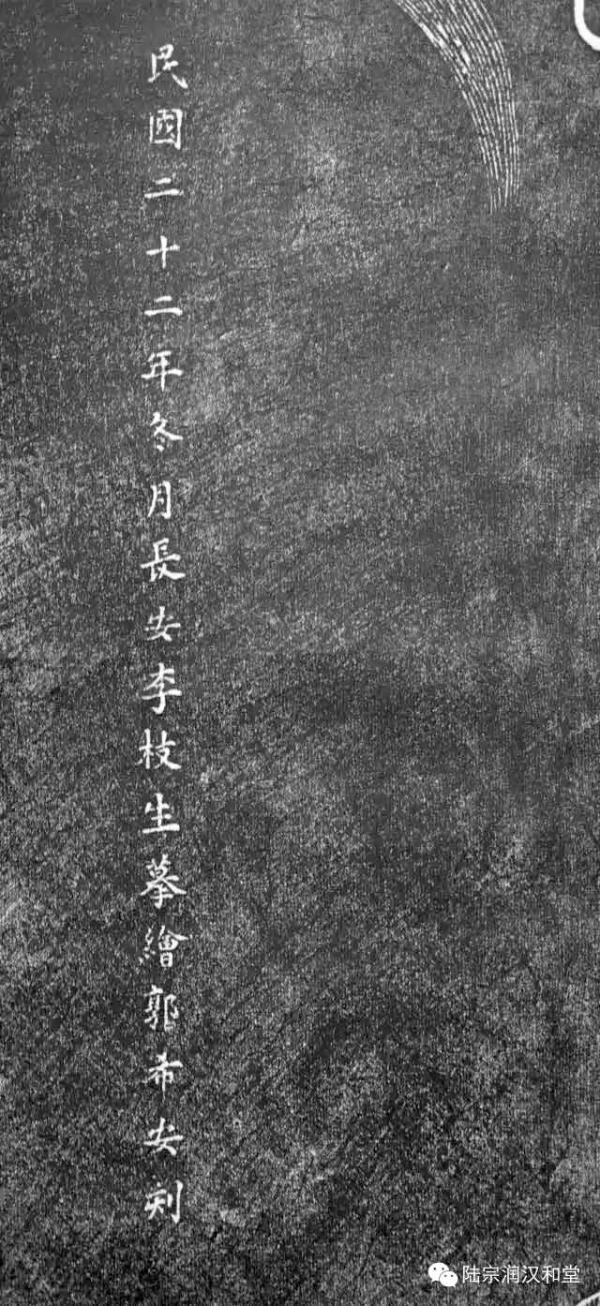 民國二十二年冬月長安李枝生摹繪郭希安刻
陆宗润汉和堂